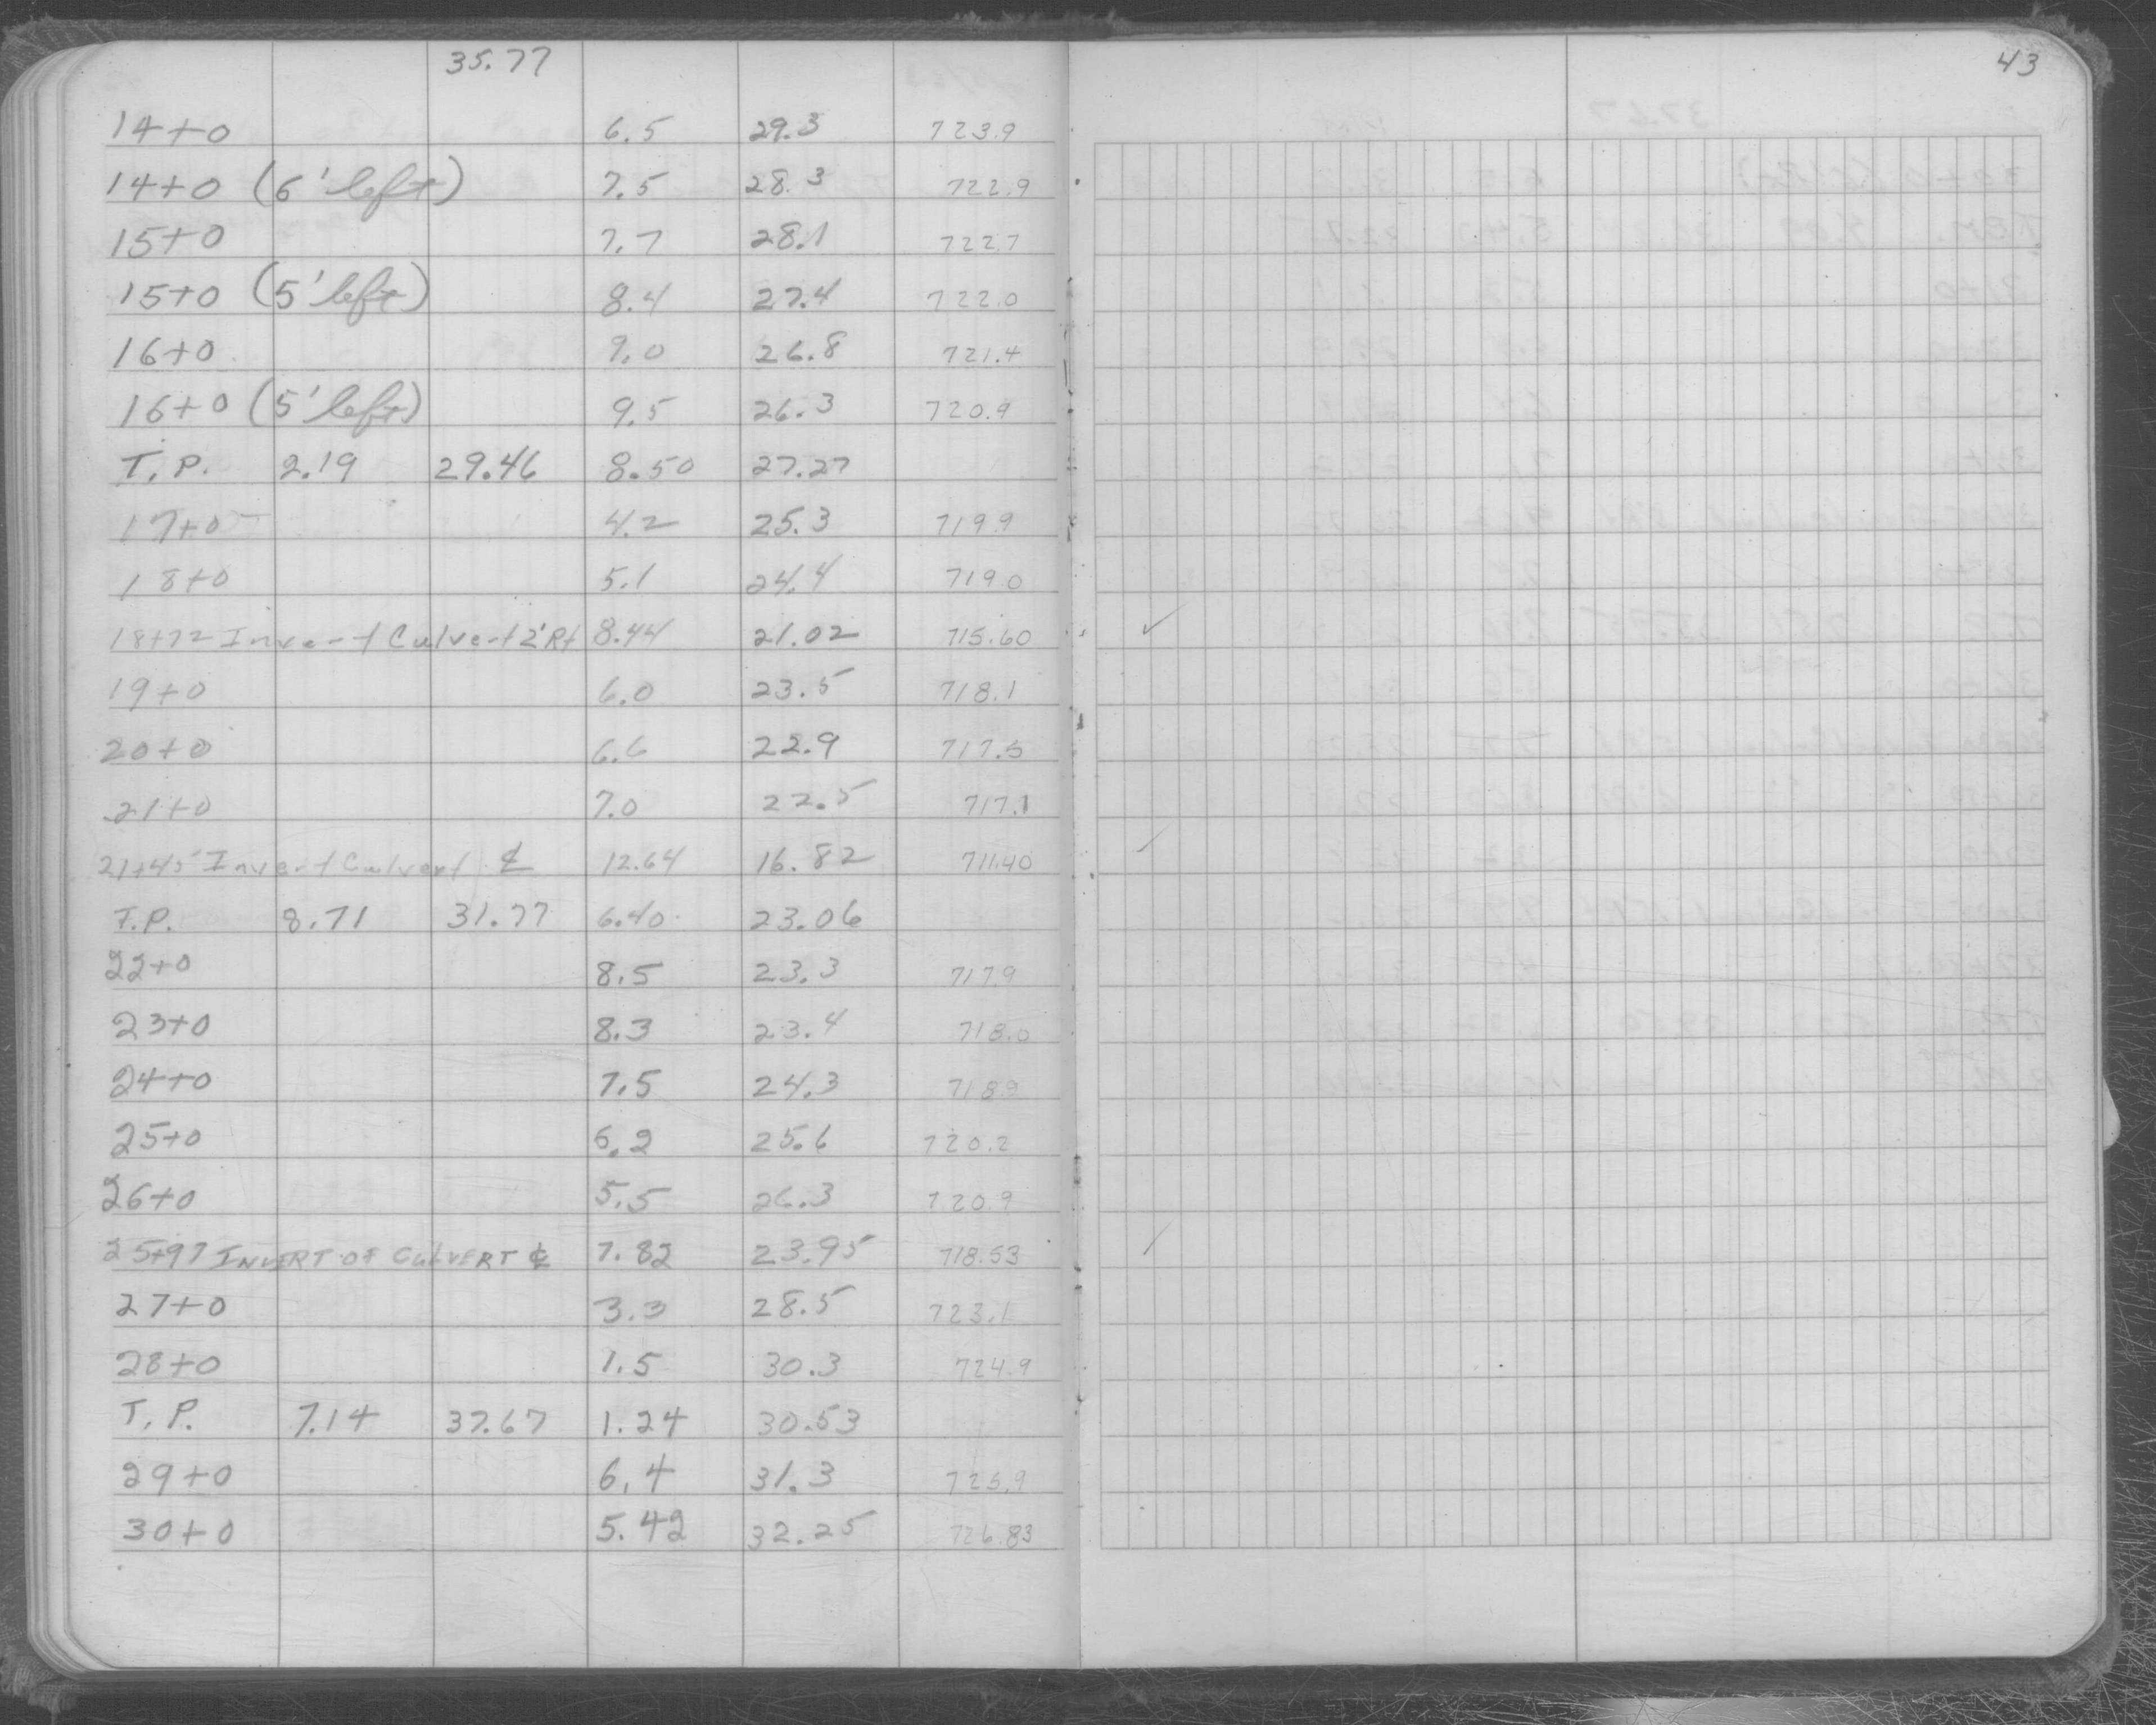 35.77
43
14+0 6.5 29.3 723.9
14+0 (6' left) 7.5 28.3 722.9
15+0 7.7 28.1 722.7
15+0 (5' left) 8.4 27.4 722.0
16+0 9.0 26.8 721.4
16+0 (5' left) 9.5 26.3 720.9
T.P. 2.19 29.46 8.50 27.27
17+0 4.2 25.3 719.9
18+0 5.1 24.4 719.0
18+72 Invert Culvert 2' Rt 8.44 21.02 715.60 ✓
19+0 6.0 23.5 718.1
20+0 6.6 22.9 717.5
21+0 7.0 22.5 717.1
21+45 Invert Culvert ℄ 12.64 16.82 711.40 ✓
T.P. 8.71 31.77 6.40 23.06
22+0 8.5 23.3 717.9
23+0 8.3 23.4 718.0
24+0 7.5 24.3 718.9
25+0 6.2 25.6 720.2
26+0 5.5 26.3 720.9
25+97 INVERT OF CULVERT ℄ 7.82 23.95 718.53 ✓
27+0 3.3 28.5 723.1
28+0 1.5 30.3 724.9
T.P. 7.14 37.67 1.24 30.53
29+0 6.4 31.3 725.9
30+0 5.42 32.25 726.83